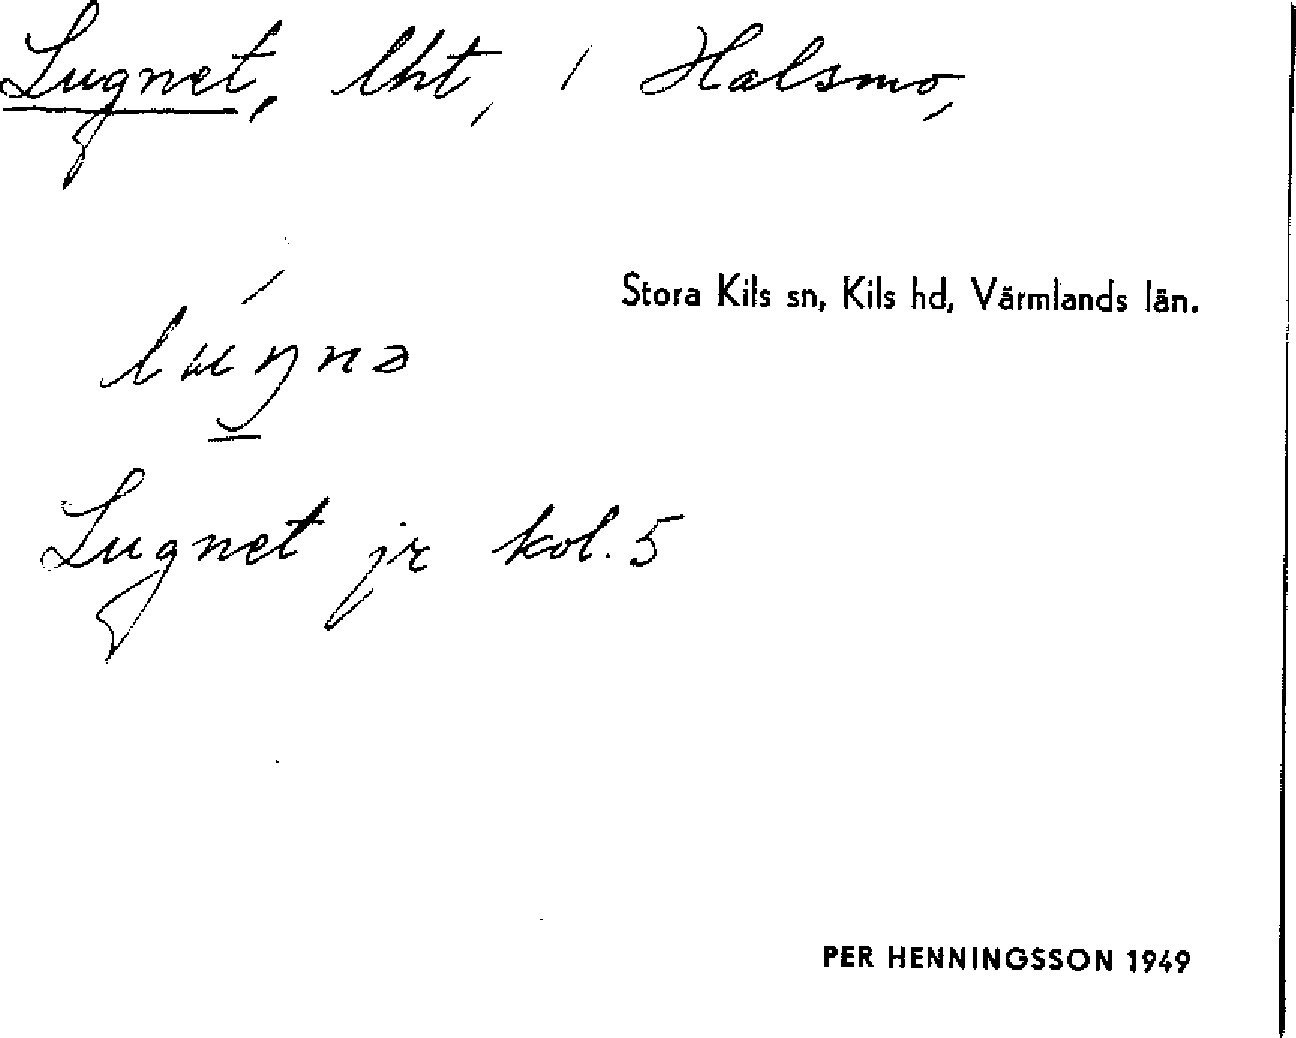 Lugnet, lht, i Halsmo,
Stora Kils sn, Kils hd, Värmlands län.
lúŋnə
Lugnet jr kol. 5
PER HENNINGSSON 1949